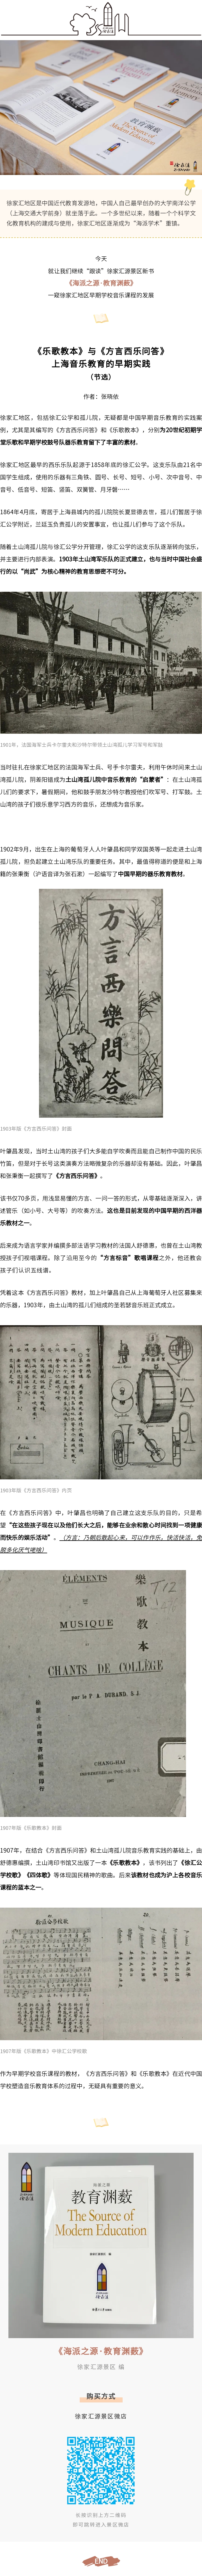 徐家汇地区是中国近代教育发源地，中国人自己最早创办的大学南洋公学
（上海交通大学前身）就坐落于此。一个多世纪以来，随着一个个科学文
化教育机构的建成与使用，徐家汇地区逐渐成为“海派学术”重镇。
今天
就让我们继续“跟读”徐家汇源景区新书
《海派之源·教育渊薮》
一窥徐家汇地区早期学校音乐课程的发展
《乐歌教本》与《方言西乐问答》
上海音乐教育的早期实践
（节选）
作者：张晓依
徐家汇地区，包括徐汇公学和孤儿院，无疑都是中国早期音乐教育的实践案
例，尤其是其编写的《方言西乐问答》和《乐歌教本》，分别为20世纪初期学
堂乐歌和早期学校鼓号队器乐教育留下了丰富的素材。
徐家汇地区最早的西乐乐队起源于1858年底的徐汇公学。这支乐队由21名中
国学生组成，使用的乐器有三角铁、圆号、长号、短号、小号、次中音号、中
音号、低音号、短笛、竖笛、双簧管、月牙磬……
1864年4月底，寄居于上海县城内的孤儿院院长夏显德去世，孤儿们暂居于徐
家汇公学附近，兰廷玉负责孤儿的安置事宜，也让孤儿们参与了这个乐队。
随着土山湾孤儿院与徐汇公学分开管理，徐汇公学的这支乐队逐渐转向弦乐，
并主要进行内部表演。1903年土山湾军乐队的正式建立，也与当时中国社会盛
行的以“尚武”为核心精神的教育思想密不可分。
1901年，法国海军士兵卡尔雷夫和沙特尔带领土山湾孤儿学习军号和军鼓
当时驻扎在徐家汇地区的法国海军士兵、号手卡尔雷夫，利用午休时间来土山
湾孤儿院，阴差阳错成为土山湾孤儿院中音乐教育的“启蒙者”：在土山湾孤
儿们的要求下，暑假期间，他和鼓手朋友沙特尔教授他们吹军号、打军鼓。土
山湾的孩子们很乐意学习西方的音乐，还想成为音乐家。
1902年9月，出生在上海的葡萄牙人人叶肇昌和同学双国英等一起走进土山湾
孤儿院，担负起建立土山湾乐队的重要任务。其中，最值得称道的便是和上海
籍的张秉衡（沪语音译为张石漱）一起编写了中国早期的器乐教育教材。
方言西樂問答
1903年版《方言西乐问答》封面
叶肇昌发现，当时土山湾的孩子们大多能自学吹奏而且能自己制作中国的民乐
竹笛，但是对于长号这类演奏方法略微复杂的乐器却没有基础。因此，叶肇昌
和张秉衡一起撰写了《方言西乐问答》。
该书仅70多页，用浅显易懂的方言、一问一答的形式，从零基础逐渐深入，讲
述管乐（如小号、大号等）的吹奏方法。这也是目前发现的中国早期的西洋器
乐教材之一。
后来成为语言学家并编撰多部法语学习教材的法国人舒德惠，也曾在土山湾教
授孩子们视唱课程。除了沿用至今的“方言标音”歌唱课程之外，他还教会
孩子们认识五线谱。
凭着这本《方言西乐问答》教材，加上叶肇昌自己从上海葡萄牙人社区募集来
的乐器，1903年，由土山湾的孤儿们组成的圣若瑟音乐班正式成立。
1903年版《方言西乐问答》内页
在《方言西乐问答》中，叶肇昌也明确了自己建立这支乐队的目的，只是希
望“在这些孩子现在以及他们长大之后，能够在业余和散心时间找到一项健康
而快乐的娱乐活动”。（方言：乃朝后散起心来，可以作作乐，快活快活，免
脱多化厌气嘡唉）
ÉLÉMENTS
DE
MUSIQUE
CHANTS DE COLLÈGE
par le P. A. DURAND, S. J.
樂歌教本
CHANG-HAI
1907年版《乐歌教本》封面
1907年，在结合《方言西乐问答》和土山湾孤儿院音乐教育实践的基础上，由
舒德惠编撰，土山湾印书馆又出版了一本《乐歌教本》，该书列出了《徐汇公
学校歌》《四体歌》等体现国民精神的歌曲，后来该教材也成为沪上各校音乐
课程的蓝本之一。
1907年版《乐歌教本》中徐汇公学校歌
作为早期学校音乐课程的教材，《方言西乐问答》和《乐歌教本》在近代中国
学校塑造音乐教育体系的过程中，无疑具有重要的意义。
教育渊薮
The Source of
Modern Education
《海派之源·教育渊薮》
徐家汇源景区 编
购买方式
徐家汇源景区微店
长按识别上方二维码
即可跳转进入景区微店
END